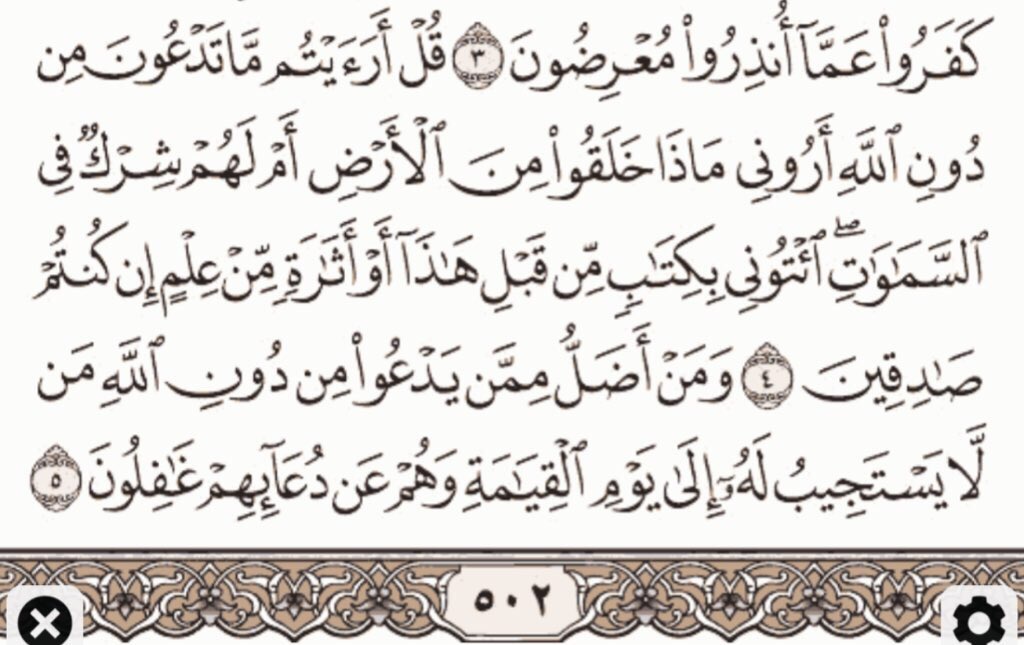 كَفَرُوا۟ عَمَّآ أُنذِرُوا۟ مُعْرِضُونَ ٣ قُلْ أَرَءَيْتُم مَّا تَدْعُونَ مِن
دُونِ ٱللَّهِ أَرُونِى مَاذَا خَلَقُوا۟ مِنَ ٱلْأَرْضِ أَمْ لَهُمْ شِرْكٌ فِى
ٱلسَّمَٰوَٰتِ ۖ ٱئْتُونِى بِكِتَٰبٍ مِّن قَبْلِ هَٰذَآ أَوْ أَثَٰرَةٍ مِّنْ عِلْمٍ إِن كُنتُمْ
صَٰدِقِينَ ٤ وَمَنْ أَضَلُّ مِمَّن يَدْعُوا۟ مِن دُونِ ٱللَّهِ مَن
لَّا يَسْتَجِيبُ لَهُۥٓ إِلَىٰ يَوْمِ ٱلْقِيَٰمَةِ وَهُمْ عَن دُعَآئِهِمْ غَٰفِلُونَ ٥
٥٠٢